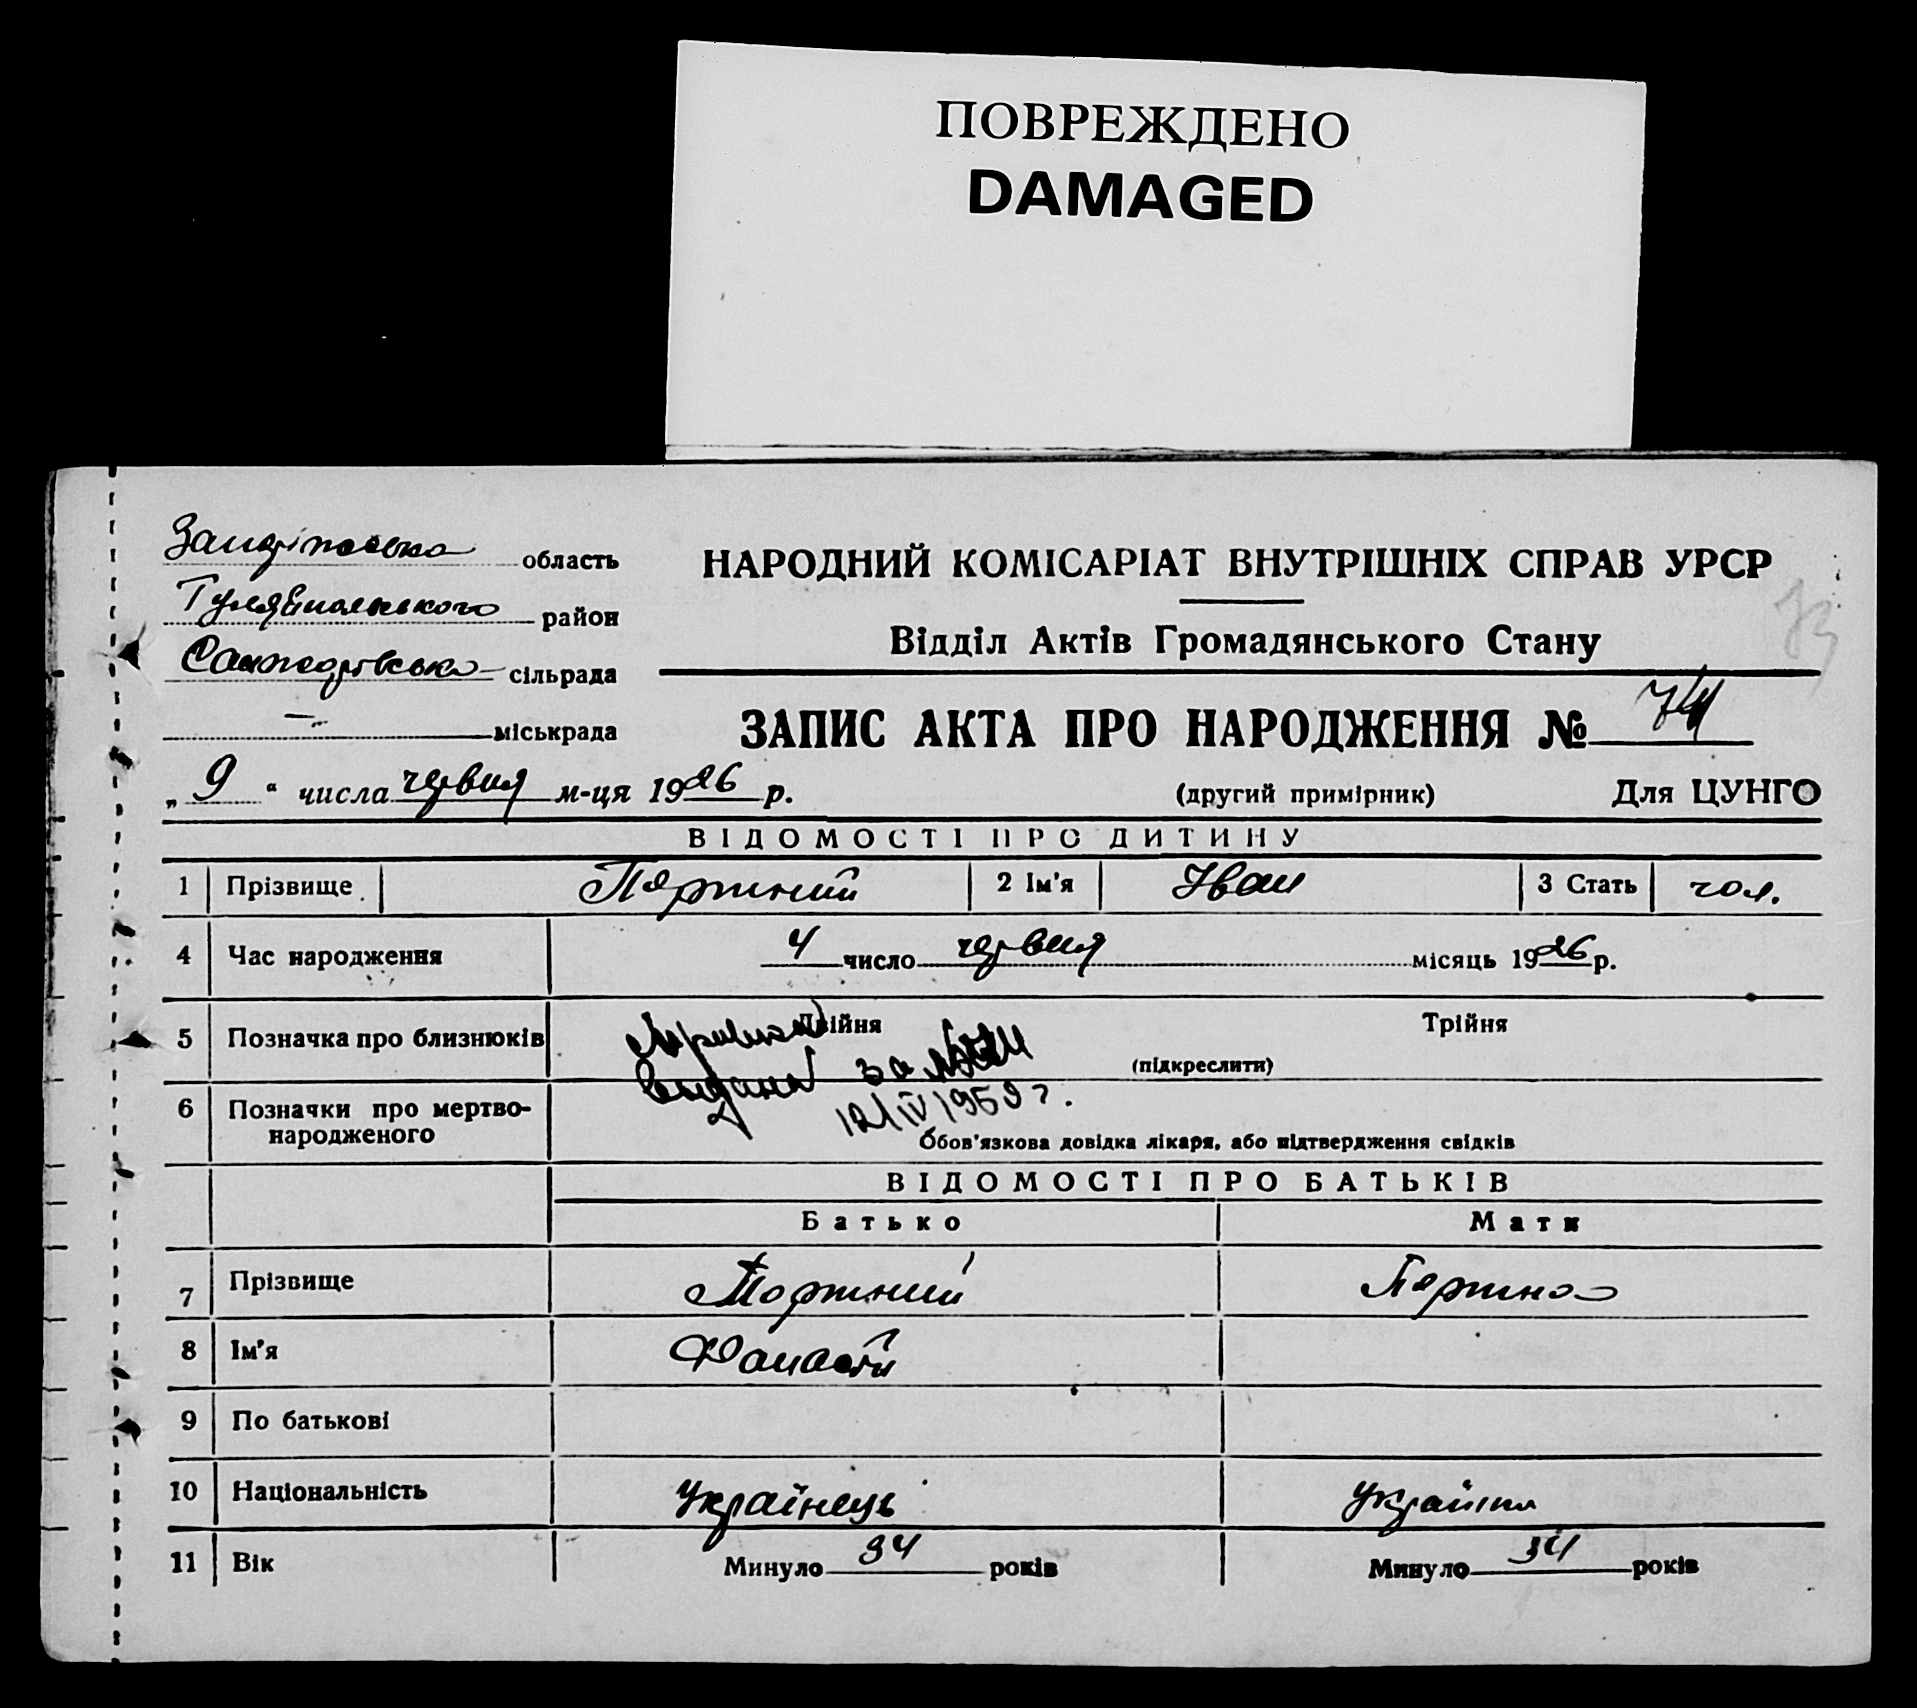 ПОВРЕЖДЕНО
DAMAGED
область
район
сільрада
міськрада
НАРОДНИЙ КОМІСАРІАТ ВНУТРІШНІХ СПРАВ УРСР
Відділ Актів Громадянського Стану
73
ЗАПИС АКТА ПРО НАРОДЖЕННЯ № 74
„ 9 “ числа червня м-ця 1926 р.
(другий примірник) Для ЦУНГО
ВІДОМОСТІ ПРО ДИТИНУ
1 Прізвище 2 Ім'я Иван 3 Стать чол.
4 Час народження 4 число червня місяць 1926 р.
5 Позначка про близнюків Двійня Трійня
(підкреслити)
6 Позначки про мертво-
народженого
12/IV 1959 г.
Обов'язкова довідка лікаря, або підтвердження свідків
ВІДОМОСТІ ПРО БАТЬКІВ
Батько Мати
7 Прізвище
8 Ім'я
9 По батькові
10 Національність Українець
11 Вік Минуло 34 років Минуло 34 років